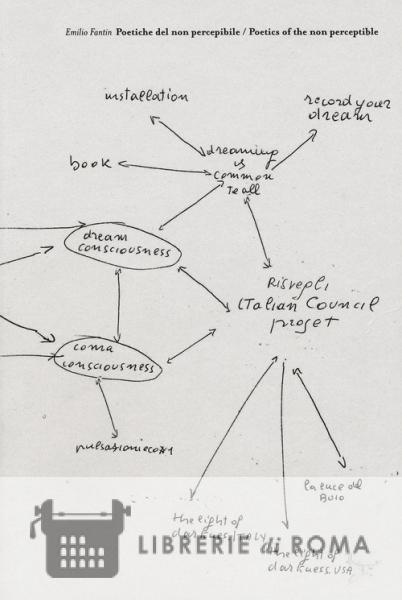 Emilio Fantin Poetiche del non percepibile / Poetics of the non perceptible
installation
record your
dream
dreaming
is
common
to all
book
dream
consciousness
Risvegli
ITalian Council
projet
coma
consciousness
la luce del
BUIO
the light of
darkness, ITALY
the light of
darkness. USA
LIBRERIE di ROMA